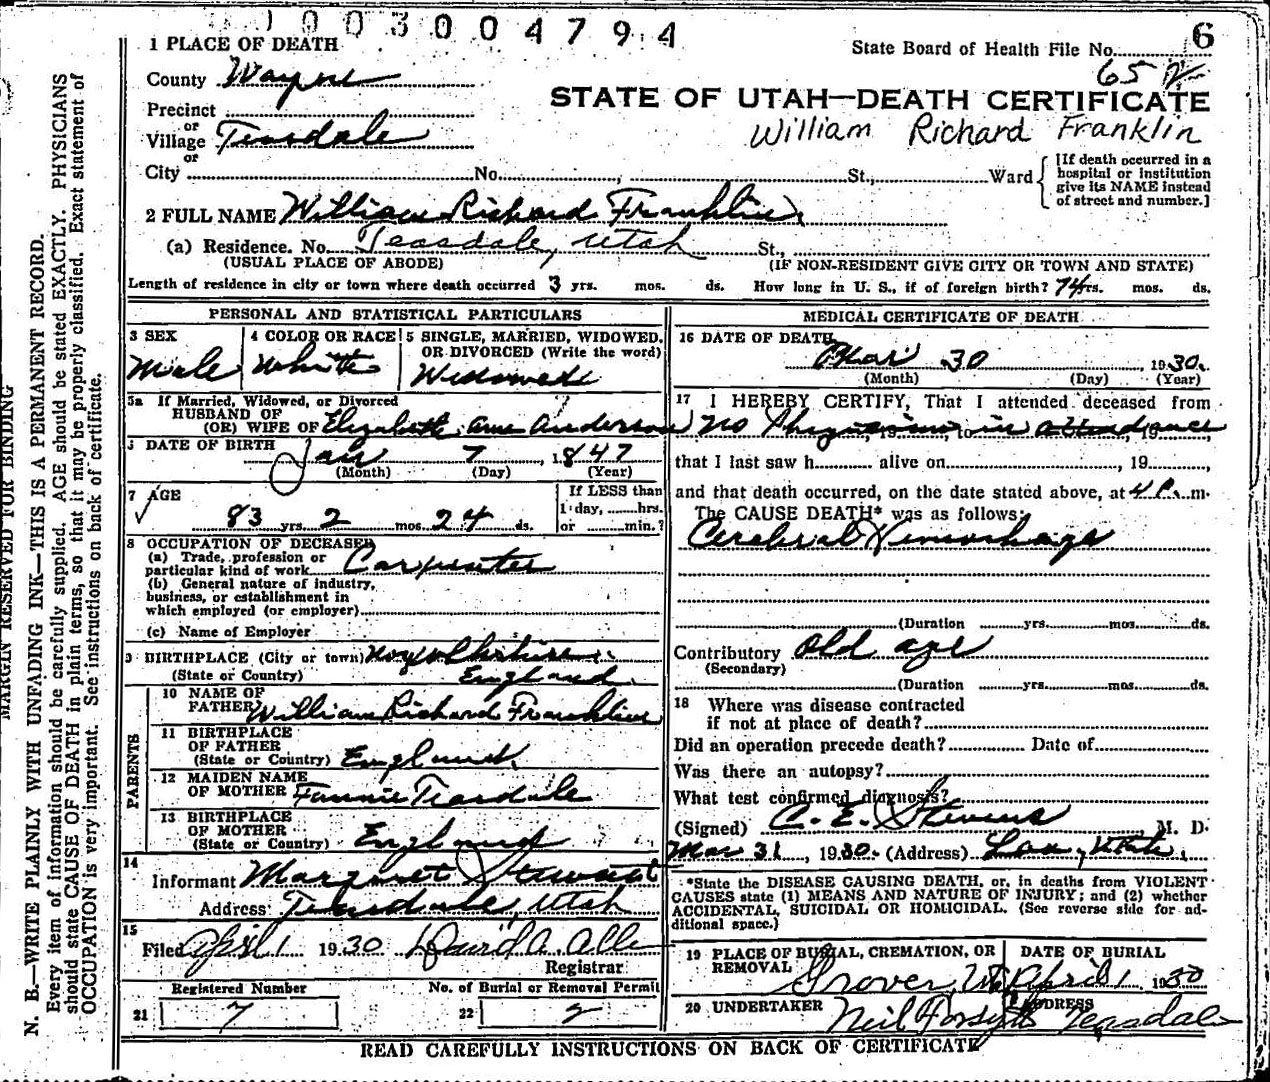 1003004794
1 PLACE OF DEATH
State Board of Health File No. 6
County Wayne
65
Precinct
STATE OF UTAH—DEATH CERTIFICATE
or
Village Teasdale
William Richard Franklin
or
City No. , St., Ward
[If death occurred in a
hospital or institution
give its NAME instead
of street and number.]
2 FULL NAME William Richard Franklin
(a) Residence. No. Teasdale, Utah St.,
(USUAL PLACE OF ABODE) (IF NON-RESIDENT GIVE CITY OR TOWN AND STATE)
Length of residence in city or town where death occurred 3 yrs. mos. ds. How long in U. S., if of foreign birth? 74 yrs. mos. ds.
PERSONAL AND STATISTICAL PARTICULARS
3 SEX
Male
4 COLOR OR RACE
White
5 SINGLE, MARRIED, WIDOWED,
OR DIVORCED (Write the word)
Widowed
5a If Married, Widowed, or Divorced
HUSBAND OF
(OR) WIFE OF Elizabeth Ann Anderson
6 DATE OF BIRTH
Jan 7, 1847
(Month) (Day) (Year)
7 AGE
83 yrs. 2 mos. 24 ds.
If LESS than
1 day, hrs.
or min.?
8 OCCUPATION OF DECEASED
(a) Trade, profession or
particular kind of work Carpenter
(b) General nature of industry,
business, or establishment in
which employed (or employer)
(c) Name of Employer
9 BIRTHPLACE (City or town)
(State or Country) England
PARENTS
10 NAME OF
FATHER William Richard Franklin
11 BIRTHPLACE
OF FATHER
(State or Country) England
12 MAIDEN NAME
OF MOTHER Fannie Teasdale
13 BIRTHPLACE
OF MOTHER
(State or Country) England
14
Informant Margaret Stewart
Address: Teasdale, Utah
15
Filed April 1 1930 David A. Allen
Registrar
Registered Number No. of Burial or Removal Permit
21 7 22 2
MEDICAL CERTIFICATE OF DEATH
16 DATE OF DEATH
Mar 30, 1930.
(Month) (Day) (Year)
17 I HEREBY CERTIFY, That I attended deceased from
No Physician in attendance
, 19 , to , 19 ,
that I last saw h alive on , 19 ,
and that death occurred, on the date stated above, at 4 P. m.
The CAUSE DEATH* was as follows:
Cerebral Hemorhage
(Duration yrs. mos. ds.
Contributory Old age
(Secondary)
(Duration yrs. mos. ds.
18 Where was disease contracted
if not at place of death?
Did an operation precede death? Date of
Was there an autopsy?
What test confirmed diagnosis?
(Signed) C. E. Stevens M. D.
Mar 31, 1930. (Address) Loa, Utah.
*State the DISEASE CAUSING DEATH, or, in deaths from VIOLENT
CAUSES state (1) MEANS AND NATURE OF INJURY; and (2) whether
ACCIDENTAL, SUICIDAL OR HOMICIDAL. (See reverse side for ad-
ditional space.)
19 PLACE OF BURIAL, CREMATION, OR
REMOVAL Grover, Ut.
DATE OF BURIAL
April 1 1930
20 UNDERTAKER Neil Forsyth
ADDRESS
Teasdale
READ CAREFULLY INSTRUCTIONS ON BACK OF CERTIFICATE
MARGIN RESERVED FOR BINDING
N. B.—WRITE PLAINLY WITH UNFADING INK—THIS IS A PERMANENT RECORD.
Every item of information should be carefully supplied. AGE should be stated EXACTLY. PHYSICIANS
should state CAUSE OF DEATH in plain terms, so that it may be properly classified. Exact statement of
OCCUPATION is very important. See instructions on back of certificate.